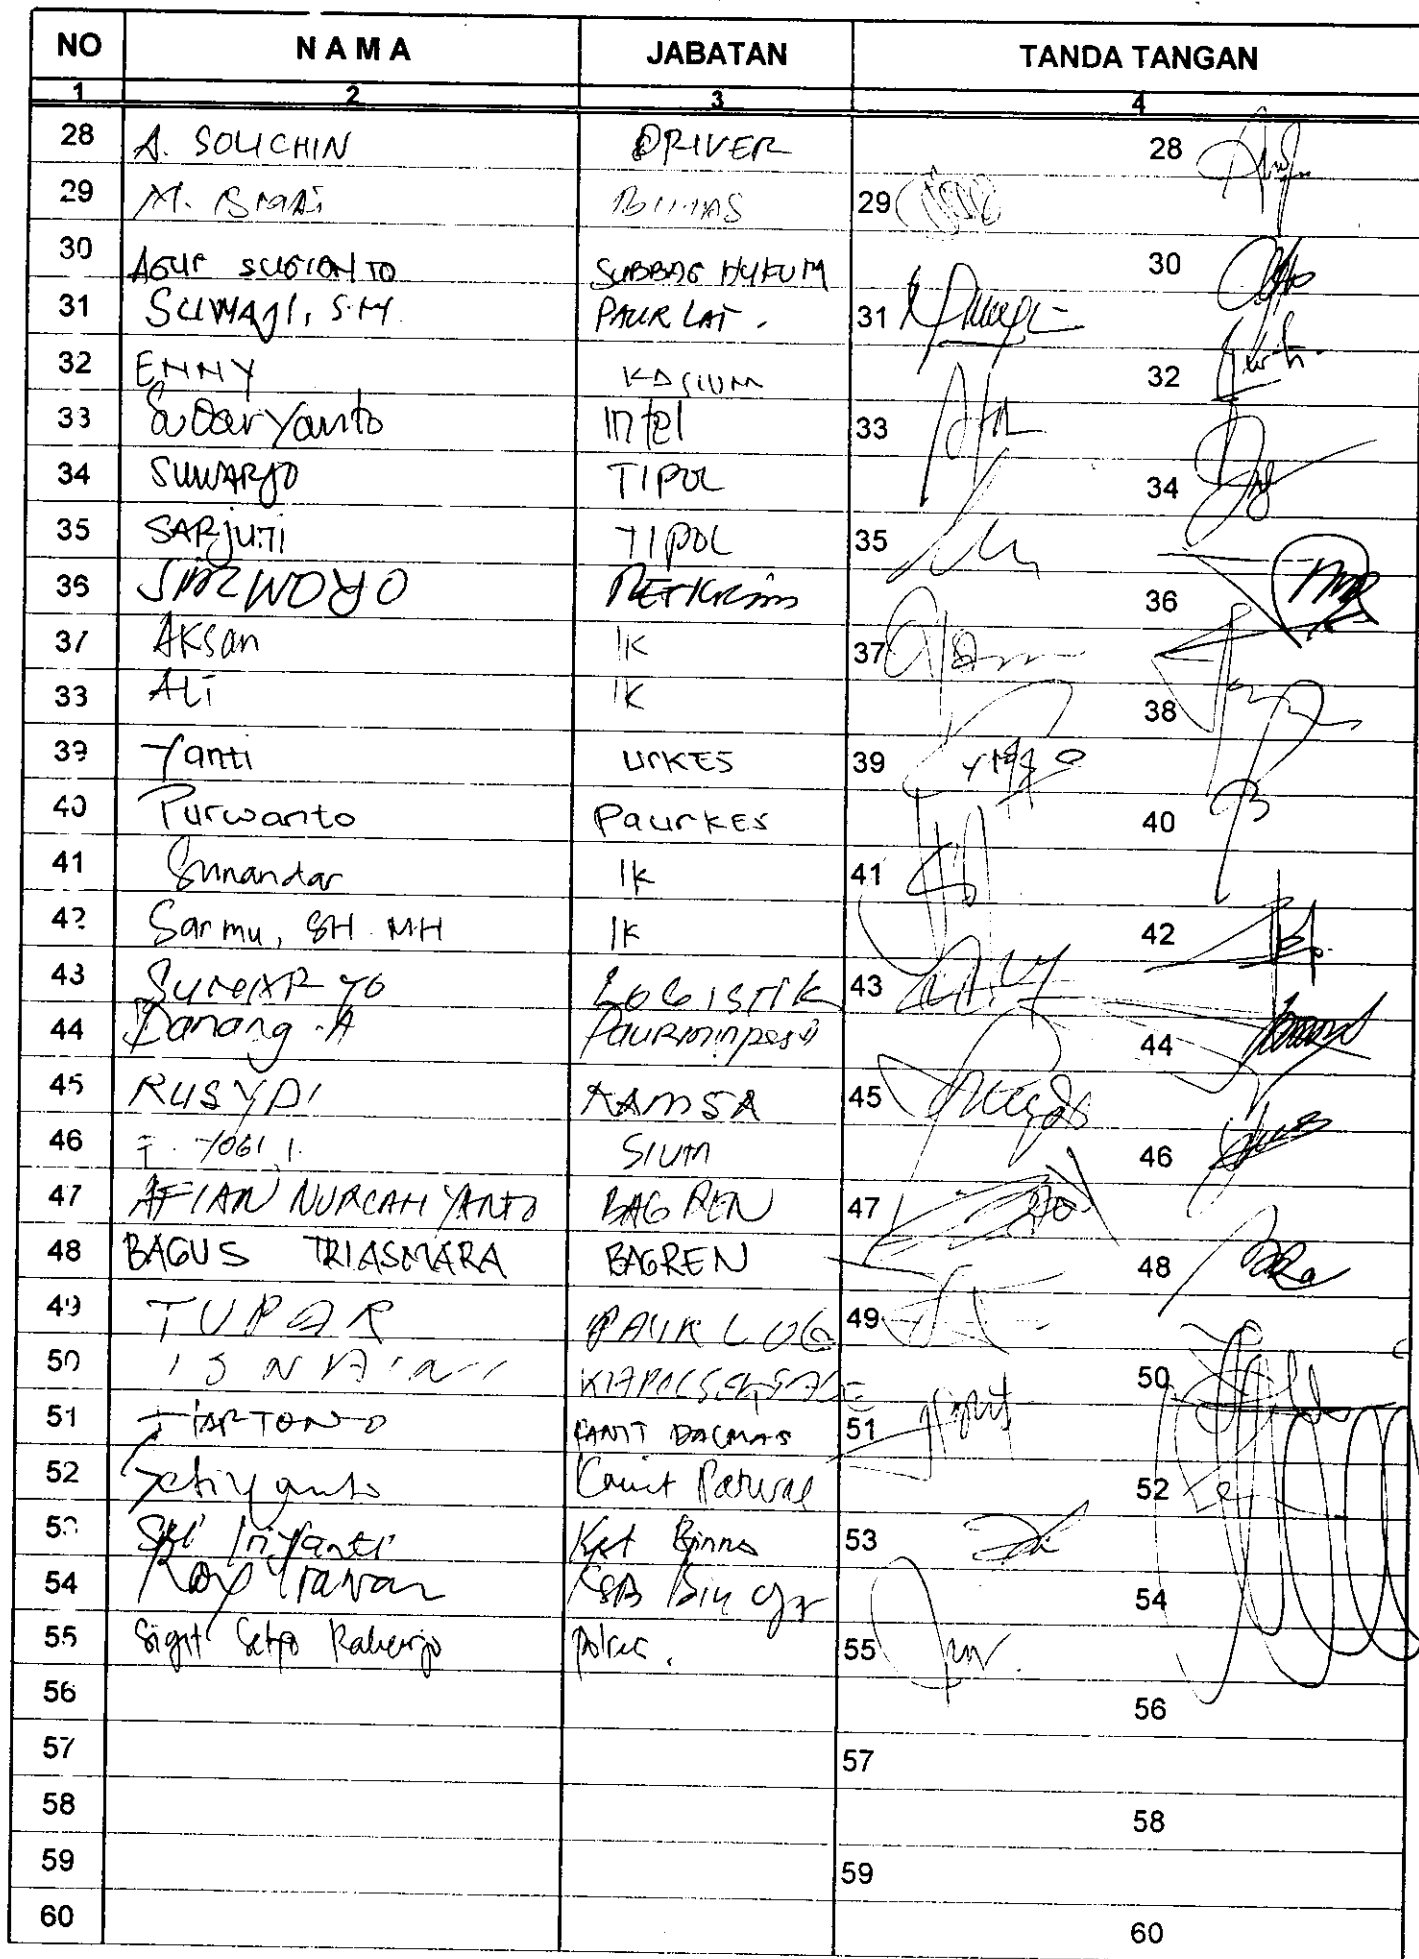 NO NAMA JABATAN TANDA TANGAN
1 2 3 4
28 A. SOLICHIN DRIVER 28
29 M. BIMAS 29
30 AGUS SUGIANTO SUBBAG HUKUM 30
31 SUWAJI, S.H. PAUR LAT. 31
32 ENNY KASIUM 32
33 Sudaryanto Intel 33
34 SUWARJO TIPOL 34
35 SARJUTI TIPOL 35
36 SARWOYO RESKRIM 36
37 AKSan IK 37
38 ALi IK 38
39 Yanti URKES 39
40 Purwanto PaurKES 40
41 Sunandar IK 41
42 Sarmu, SH. MH IK 42
43 SUMARYO LOGISTIK 43
44 Danang .A Paurminpers 44
45 RUSYDI KAMSA 45
46 F. YOGI I. SIUM 46
47 AFIAN NURCAHYANTO BAG REN 47
48 BAGUS TRIASMARA BAGREN 48
49 TUPAR PAUR LOG 49
50 50
51 HARTONO KANIT DALMAS 51
52 Setiyanto Kanit Patwal 52
53 Sri Iriyanti 53
54 Roy Irawan 54
55 Sigit Setyo Raharjo 55
56 56
57 57
58 58
59 59
60 60